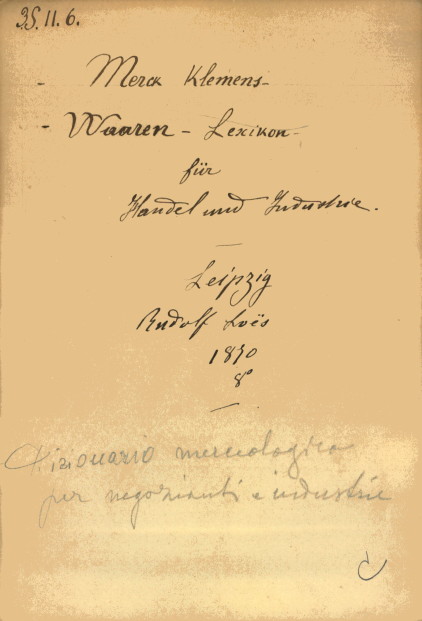 35.11.6.
Merck Klemens-
- Waaren - Lexikon -
für
Handel und Industrie.
Leipzig
Rudolf Loës
1870
8°
Dizionario merceologico
per negozianti e industrie